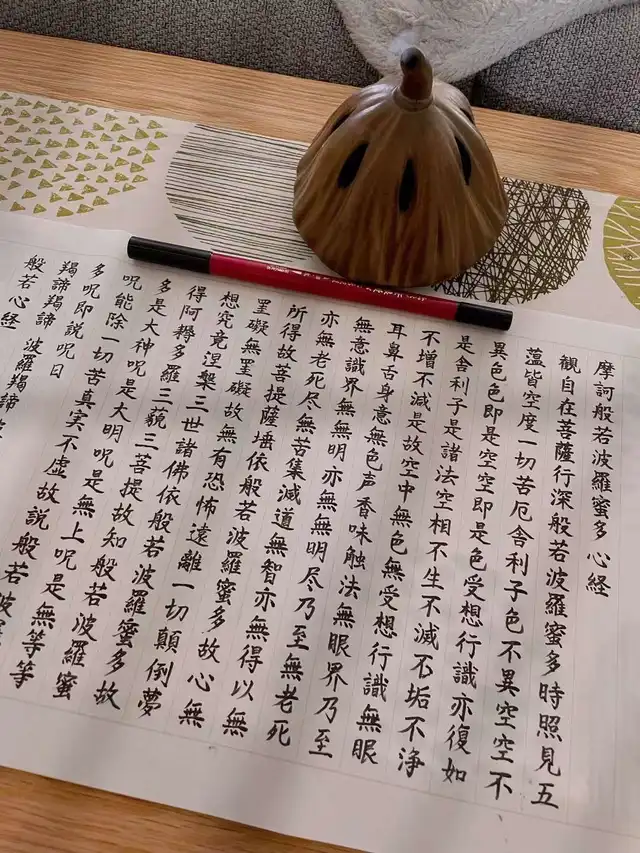 摩訶般若波羅蜜多心経
観自在菩薩行深般若波羅蜜多時照見五
薀皆空度一切苦厄舎利子色不異空空不
異色色即是空空即是色受想行識亦復如
是舎利子是諸法空相不生不滅不垢不浄
不増不減是故空中無色無受想行識無眼
耳鼻舌身意無色声香味触法無眼界乃至
無意識界無無明亦無無明尽乃至無老死
亦無老死尽無苦集滅道無智亦無得以無
所得故菩提薩埵依般若波羅蜜多故心無
罣礙無罣礙故無有恐怖遠離一切顛倒夢
想究竟涅槃三世諸佛依般若波羅蜜多故
得阿耨多羅三藐三菩提故知般若波羅蜜
多是大神呪是大明呪是無上呪是無等等
呪能除一切苦真実不虚故説般若波羅
多呪即説呪曰
羯諦羯諦 波羅羯諦
般若心経